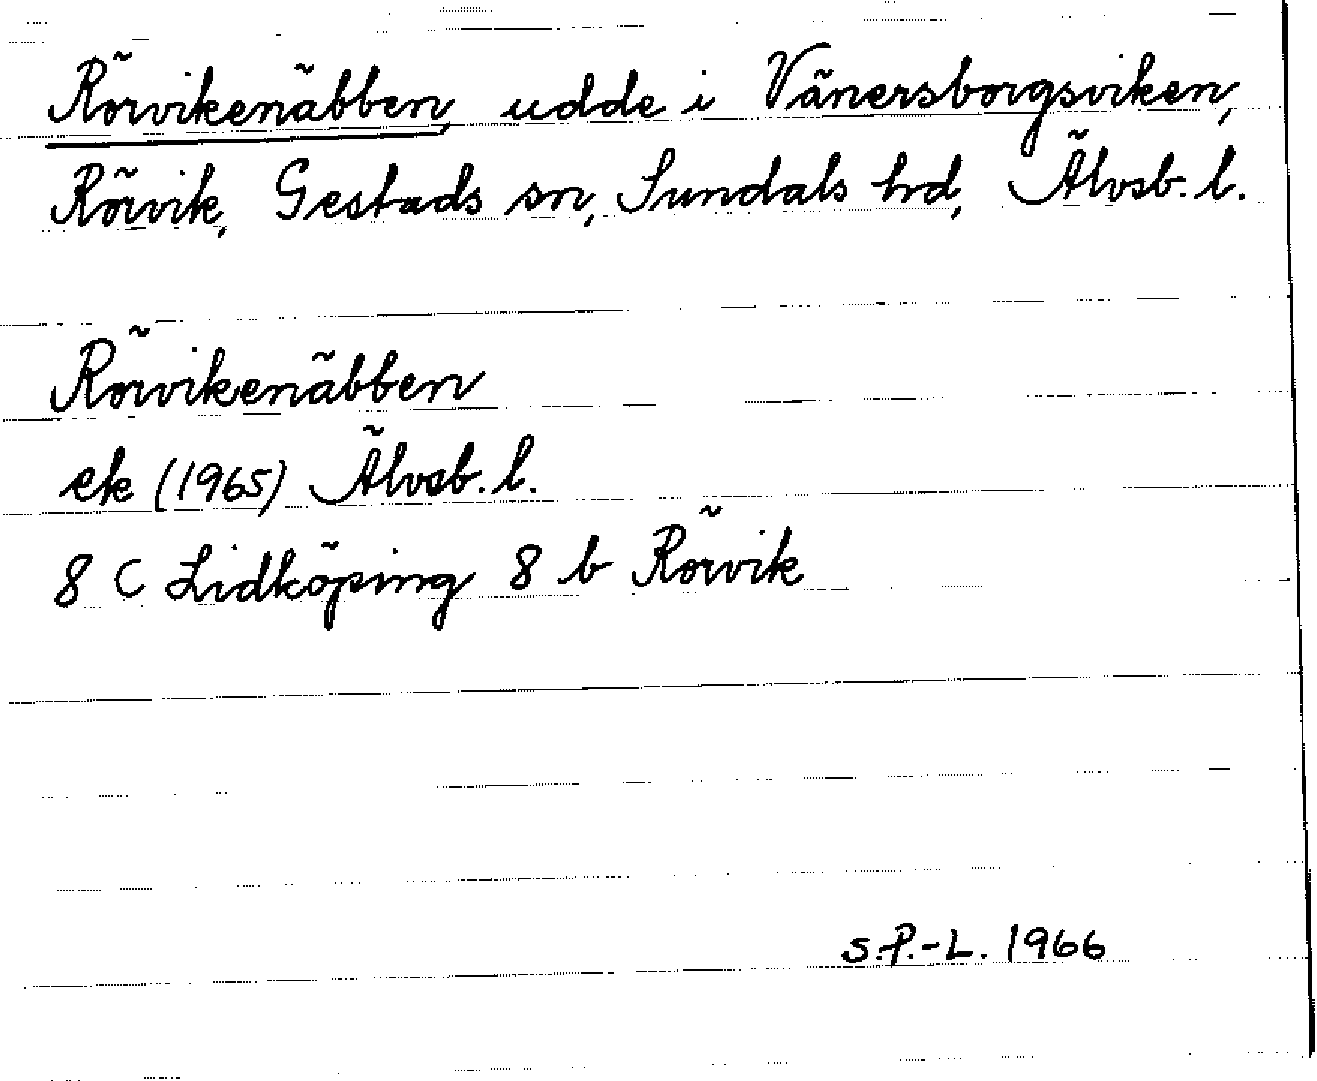 Rörvikenäbben, udde i Vänersborgsviken,
Rörvik, Gestads sn, Sundals hd, Älvsb. l.
Rörvikenäbben
ek (1965) Älvsb. l.
8 C Lidköping 8 b Rörvik
S.P.-L. 1966